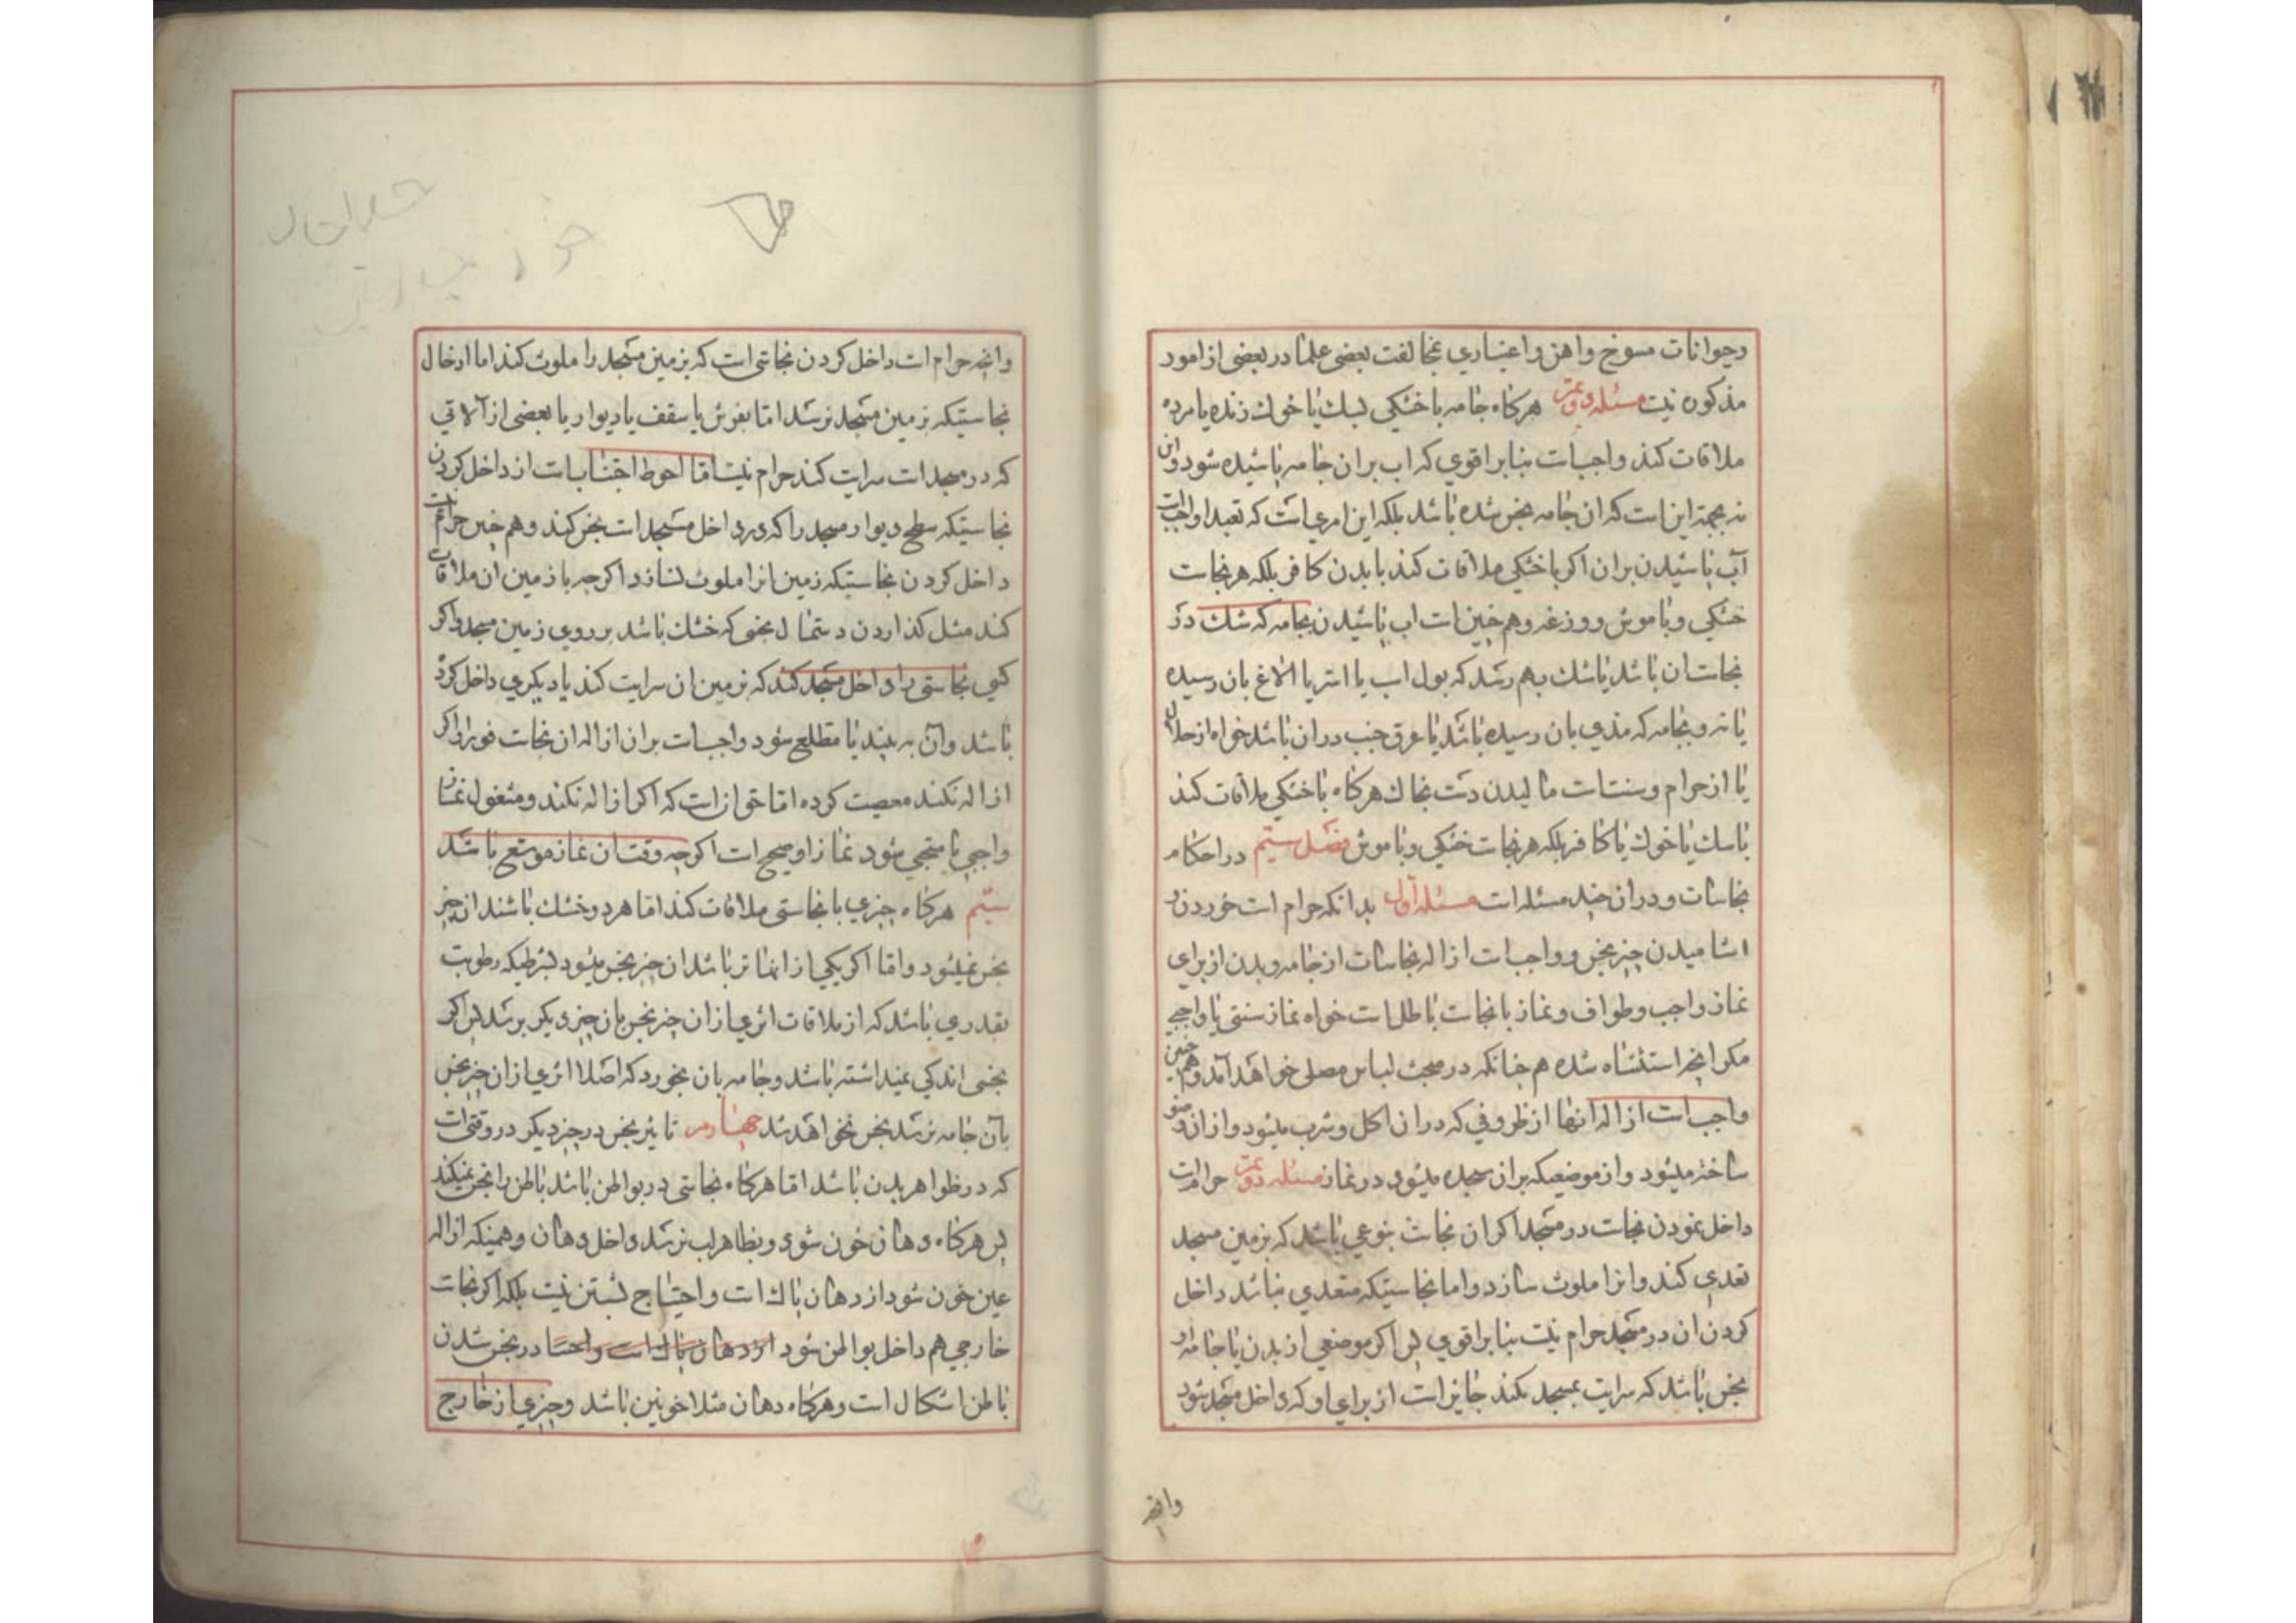 وحیوانات مسوخ واهن واعتباری بمخالفت بعضی علما در بعضی از امور
مذکوره نیست مسئله دویم هرکاه جامه با خشکی بسك یا خوك زنده یا مرده
ملاقات کند واجبست بنا بر اقوی که اب بر ان جامه پاشیده شود واین
نه بجهة اینست که ان جامه نجس شده باشد بلکه این امری است که تعبدا واجبست
آب پاشیدن بران اکر با خشکی ملاقات کند با بدن کافر بلکه هر نجاست
خشکی وبا موش ووزغه وهم چنین است اب پاشیدن بجامه که شك در
نجاست ان باشد یا شك بهم رسد که بول اسب یا استر یا الاغ بان رسیده
یا نه وبجامه که مذی بان رسیده باشد یا عرق جنب در ان باشد خواه از حلال
یا از حرام وسنتست مالیدن دست بخاك هرکاه با خشکی ملاقات کند
با سك یا خوك یا کافر بلکه هر نجاست خشکی وبا موش فصل سیم در احکام
نجاسات ودر ان چند مسئله است مسئله اول بدانکه حرام است خوردن و
اشامیدن چیز نجس وواجبست ازاله نجاسات از جامه وبدن از برای
نماز واجب وطواف ونماز با نجاست باطل است خواه نماز سنتی یا واجبی
مکر انچه استثناه شده هم چنانکه در مبحث لباس مصلی خواهد آمد وهم چنین
واجب است ازاله انها از ظروفی که در ان اکل وشرب میشود واز ان وضو
ساخته میشود واز موضعیکه بر ان سجده میشود در نماز مسئله دویم حرام است
داخل نمودن نجاست در مسجد اکر ان نجاست بنوعی باشد که بزمین مسجد
تعدی کند وانرا ملوث سازد واما نجاستیکه متعدی نباشد داخل
کردن ان در مسجد حرام نیست بنا بر اقوی پس اکر موضعی از بدن یا جامه او
نجس باشد که سرایت بمسجد نکند جایز است از برای او که داخل مسجد شود
وانچه
وانچه حرام است داخل کردن نجاستی است که بزمین مسجد را ملوث کند اما ادخال
نجاستیکه بزمین مسجد نرسد اما بفرش یا سقف یا دیوار یا بعضی از آلاتی
که در مسجد است سرایت کند حرام نیست اما احوط اجتناب است از داخل کردن
نجاستیکه سطح دیوار مسجد را که در داخل مسجد است نجس کند وهم چنین حرام است
داخل کردن نجاستیکه زمین انرا ملوث نسازد اکرچه با زمین ان ملاقات
کند مثل کذاردن دستمال نجسی که خشك باشد بر روی زمین مسجد واکر
کسی نجاستی را داخل مسجد کند که بزمین ان سرایت کند یا دیکری داخل کرده
باشد وآن به بیند یا مطلع شود واجب است بران ازاله ان نجاست فورا واکر
ازاله نکند معصیت کرده اما جواز است که اکر ازاله نکند ومشغول نماز
واجبی یا سنتی شود نماز او صحیح است اکرچه وقت ان نماز موسع باشد
سیم هرکاه چیزی با نجاستی ملاقات کند اما هر دو خشك باشند ان چیز
نجس نمیشود واما اکر یکی از انها تر باشد ان چیز نجس میشود بشرطیکه رطوبت
بقدری باشد که از ملاقات اثری از ان چیز نجس بان چیز دیکر برسد پس اکر
نجسی اندکی نم داشته باشد وجامه بان بخورد که اصلا اثری از ان چیز نجس
بآن جامه نرسد نجس نخواهد شد چهارم تاثیر نجس در چیز دیکر در وقتی است
که در ظواهر بدن باشد اما هرکاه نجاستی در بواطن باشد باطن را نجس نمیکند
پس هرکاه دهان خون شود وبظاهر لب نرسد داخل دهان وهمینکه ازاله
عین خون شود از دهان پاك است واحتیاج بشستن نیست بلکه اکر نجاست
خارجی هم داخل بواطن شود از دهان پاك است واحتیا در نجس شدن
باطن اشکال است وهرکاه دهان مثلا خونین باشد وچیزی از خارج